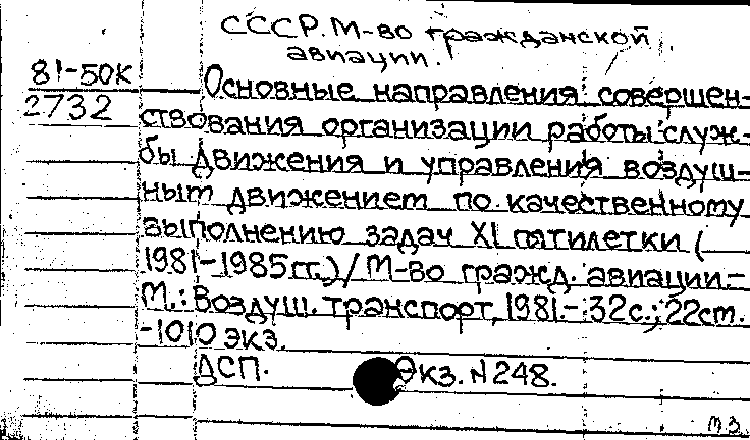 СССР. М-во гражданской
авиации.
81-50К
2732
Основные направления совершен-
ствования организации работы служ-
бы движения и управления воздуш-
ным движением по качественному
выполнению задач XI пятилетки (
1981-1985гг.)/М-во гражд. авиации.-
М.: Воздуш. транспорт, 1981.- 32с.; 22см.
-1010 экз.
ДСП. Экз. N248.
м.з.